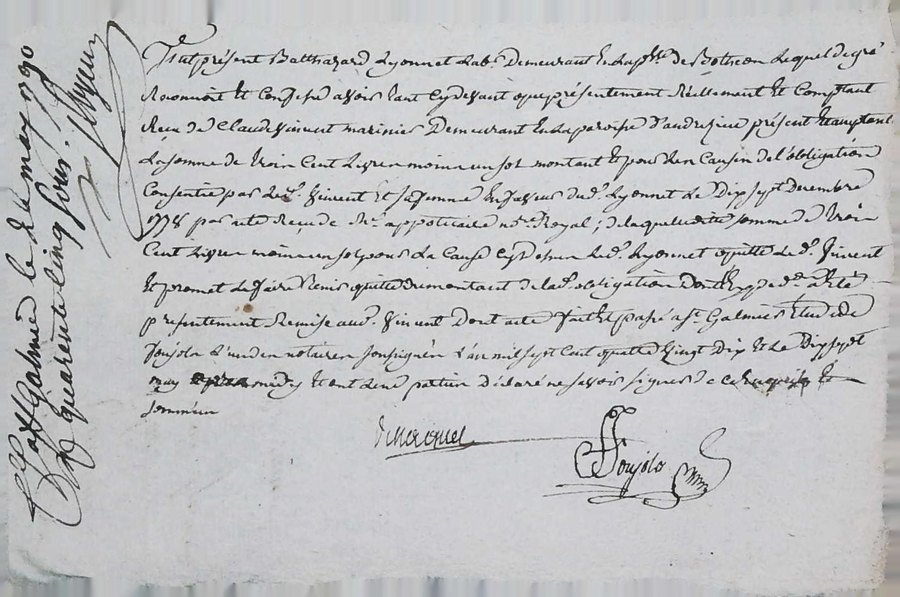 fut présent Balthazard Lyonnet lab.r demeurant en la psse de Bothéon lequel de gré
Reconnoit et confesse avoir tant cydevant que présentement Réellement et Comptant
Receu de Claude vincent marinier Demeurant en la paroisse d'andrésieu présent et acceptant
La somme de trois Cent Livres moins un sol montant et pour les Causes de l'obligation
Consentie par led.t vincent et sa femme en faveur dud. Lyonnet Le Dix sept Décembre
1778 par acte Receu de Me appoticaire nre Royal ; de laquelle ditte somme de trois
Cent Livres moins un sol pour La Cause cy dessus Led. Lyonnet quitte Led. vincent
Et promet Le faire tenir quitte du montant de lad. obligation dont l'exp.
présentement Remise aud. vincent Dont acte fait et passé a St. Galmier Etude de
Soujols L'un des notaires soussignés L'an mil sept cent quatre vingt Dix et Le Dix sept
may midy et ont Les parties déclaré ne savoir signer de ce Enquises et
sommées
Soujols
St Galmier le may 1790
quarente cinq sous.